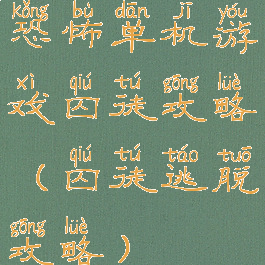 kǒng bù dān jī yóu
恐怖单机游
xì qiú tú gōng lüè
戏囚徒攻略
qiú tú táo tuō
（囚徒逃脱
gōng lüè
攻略）